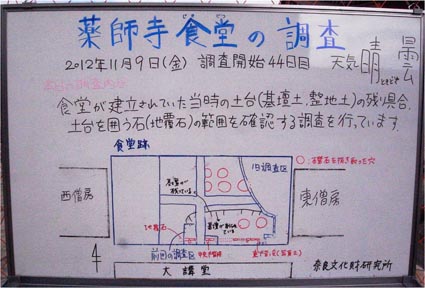 薬師寺食堂の調査
じきどう
2012年11月9日(金) 調査開始44日目 天気 晴 ときどき 曇
本日の調査内容
食堂が建立されていた当時の土台(基壇土、整地土)の残り具合、
土台を囲う石(地覆石)の範囲を確認する調査を行っています。
食堂跡
○:礎石を抜き取った穴
旧調査区
基壇が残っている。
西僧房
東僧房
地覆石
前回の調査区
大講堂
奈良文化財研究所